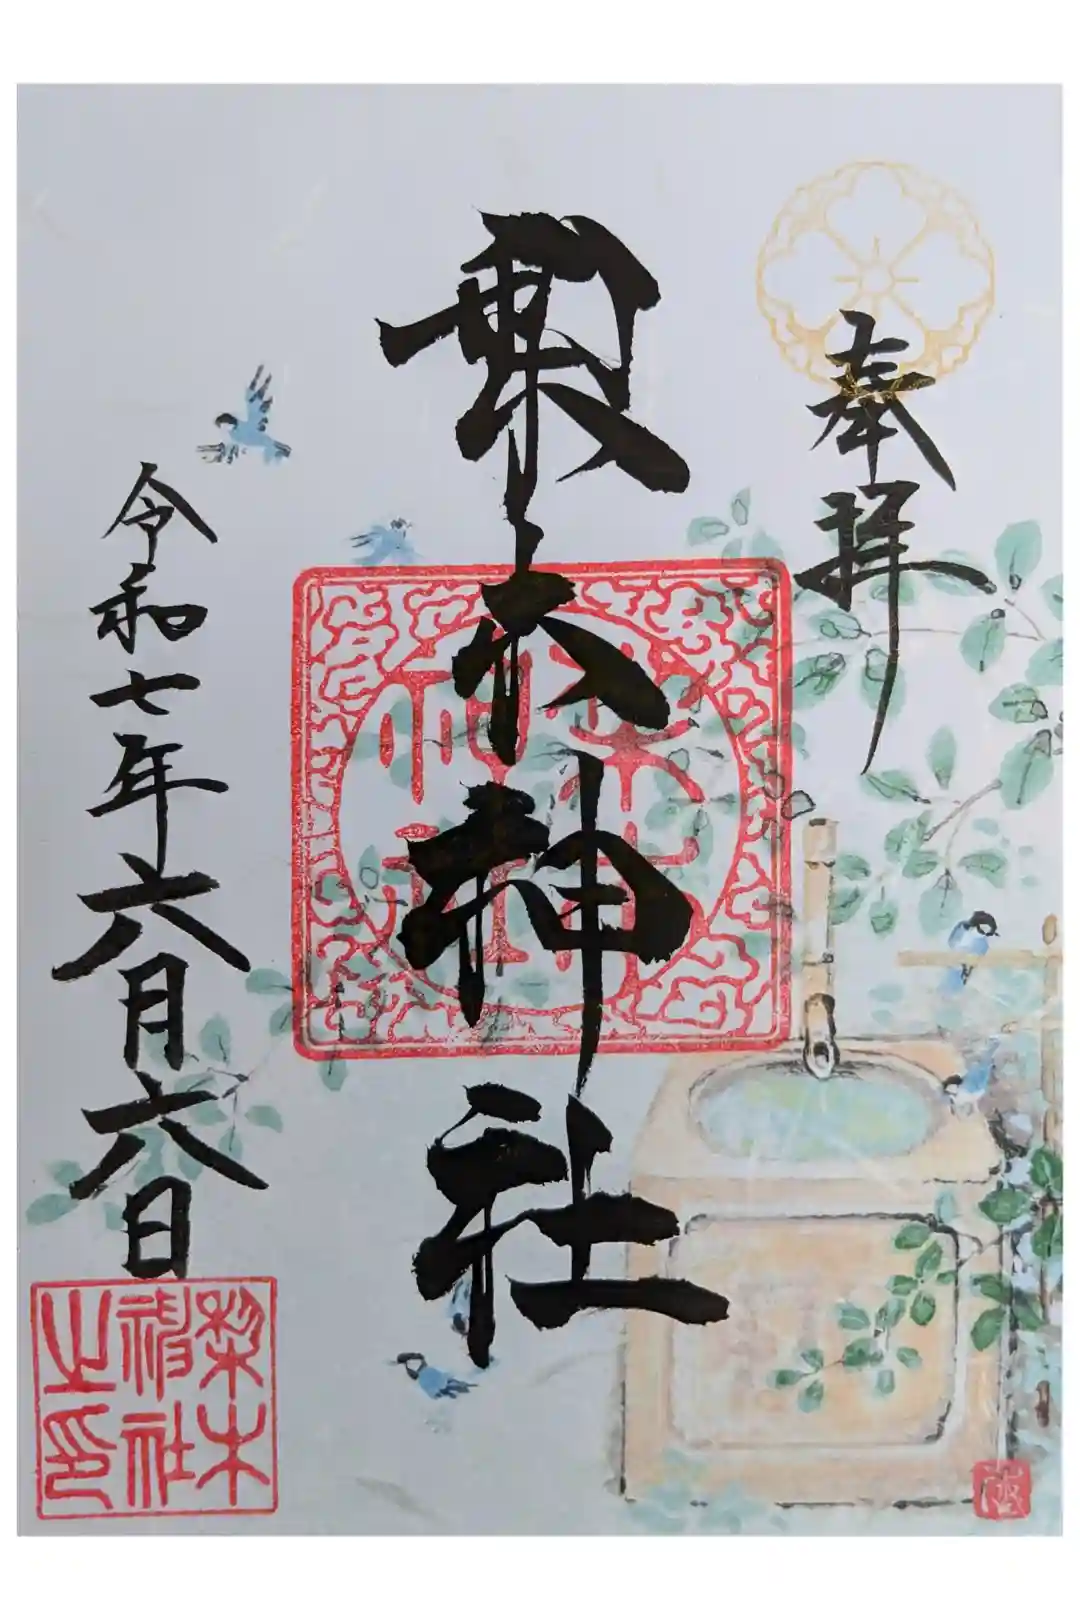 奉拝
梨木神社
梨木
神社
令和七年六月六日
梨木
神社
之印